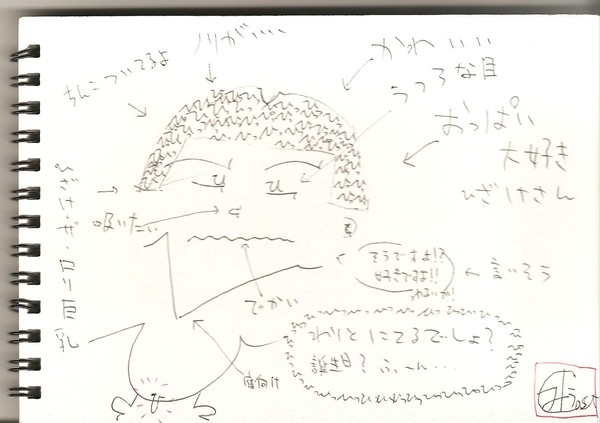 ちんこついてるよ
かわいい
うつろな目
おっぱい
大好き
ひざけさん
吸いたい
そうですよ!?
好きですよ!!
わるいか!
言いそう
でかい
わりとにてるでしょ?
誕生日? ふーん…